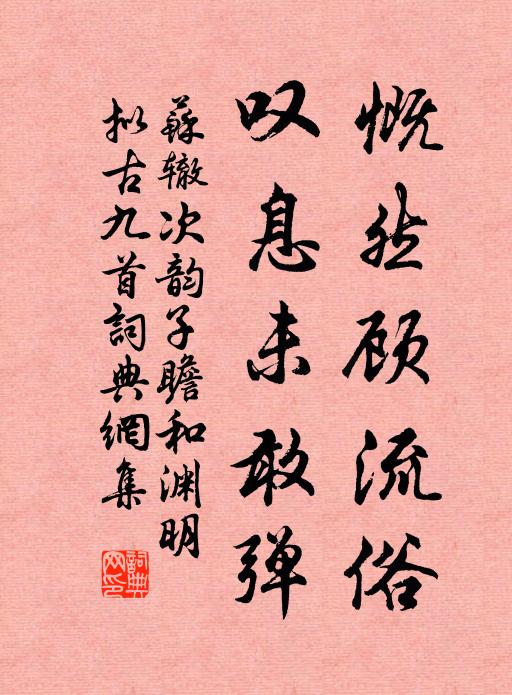 慨然顾流俗
叹息未敢弹
蘇辙次韵子瞻和渊明
拟古九首詞典網集
詞典网印